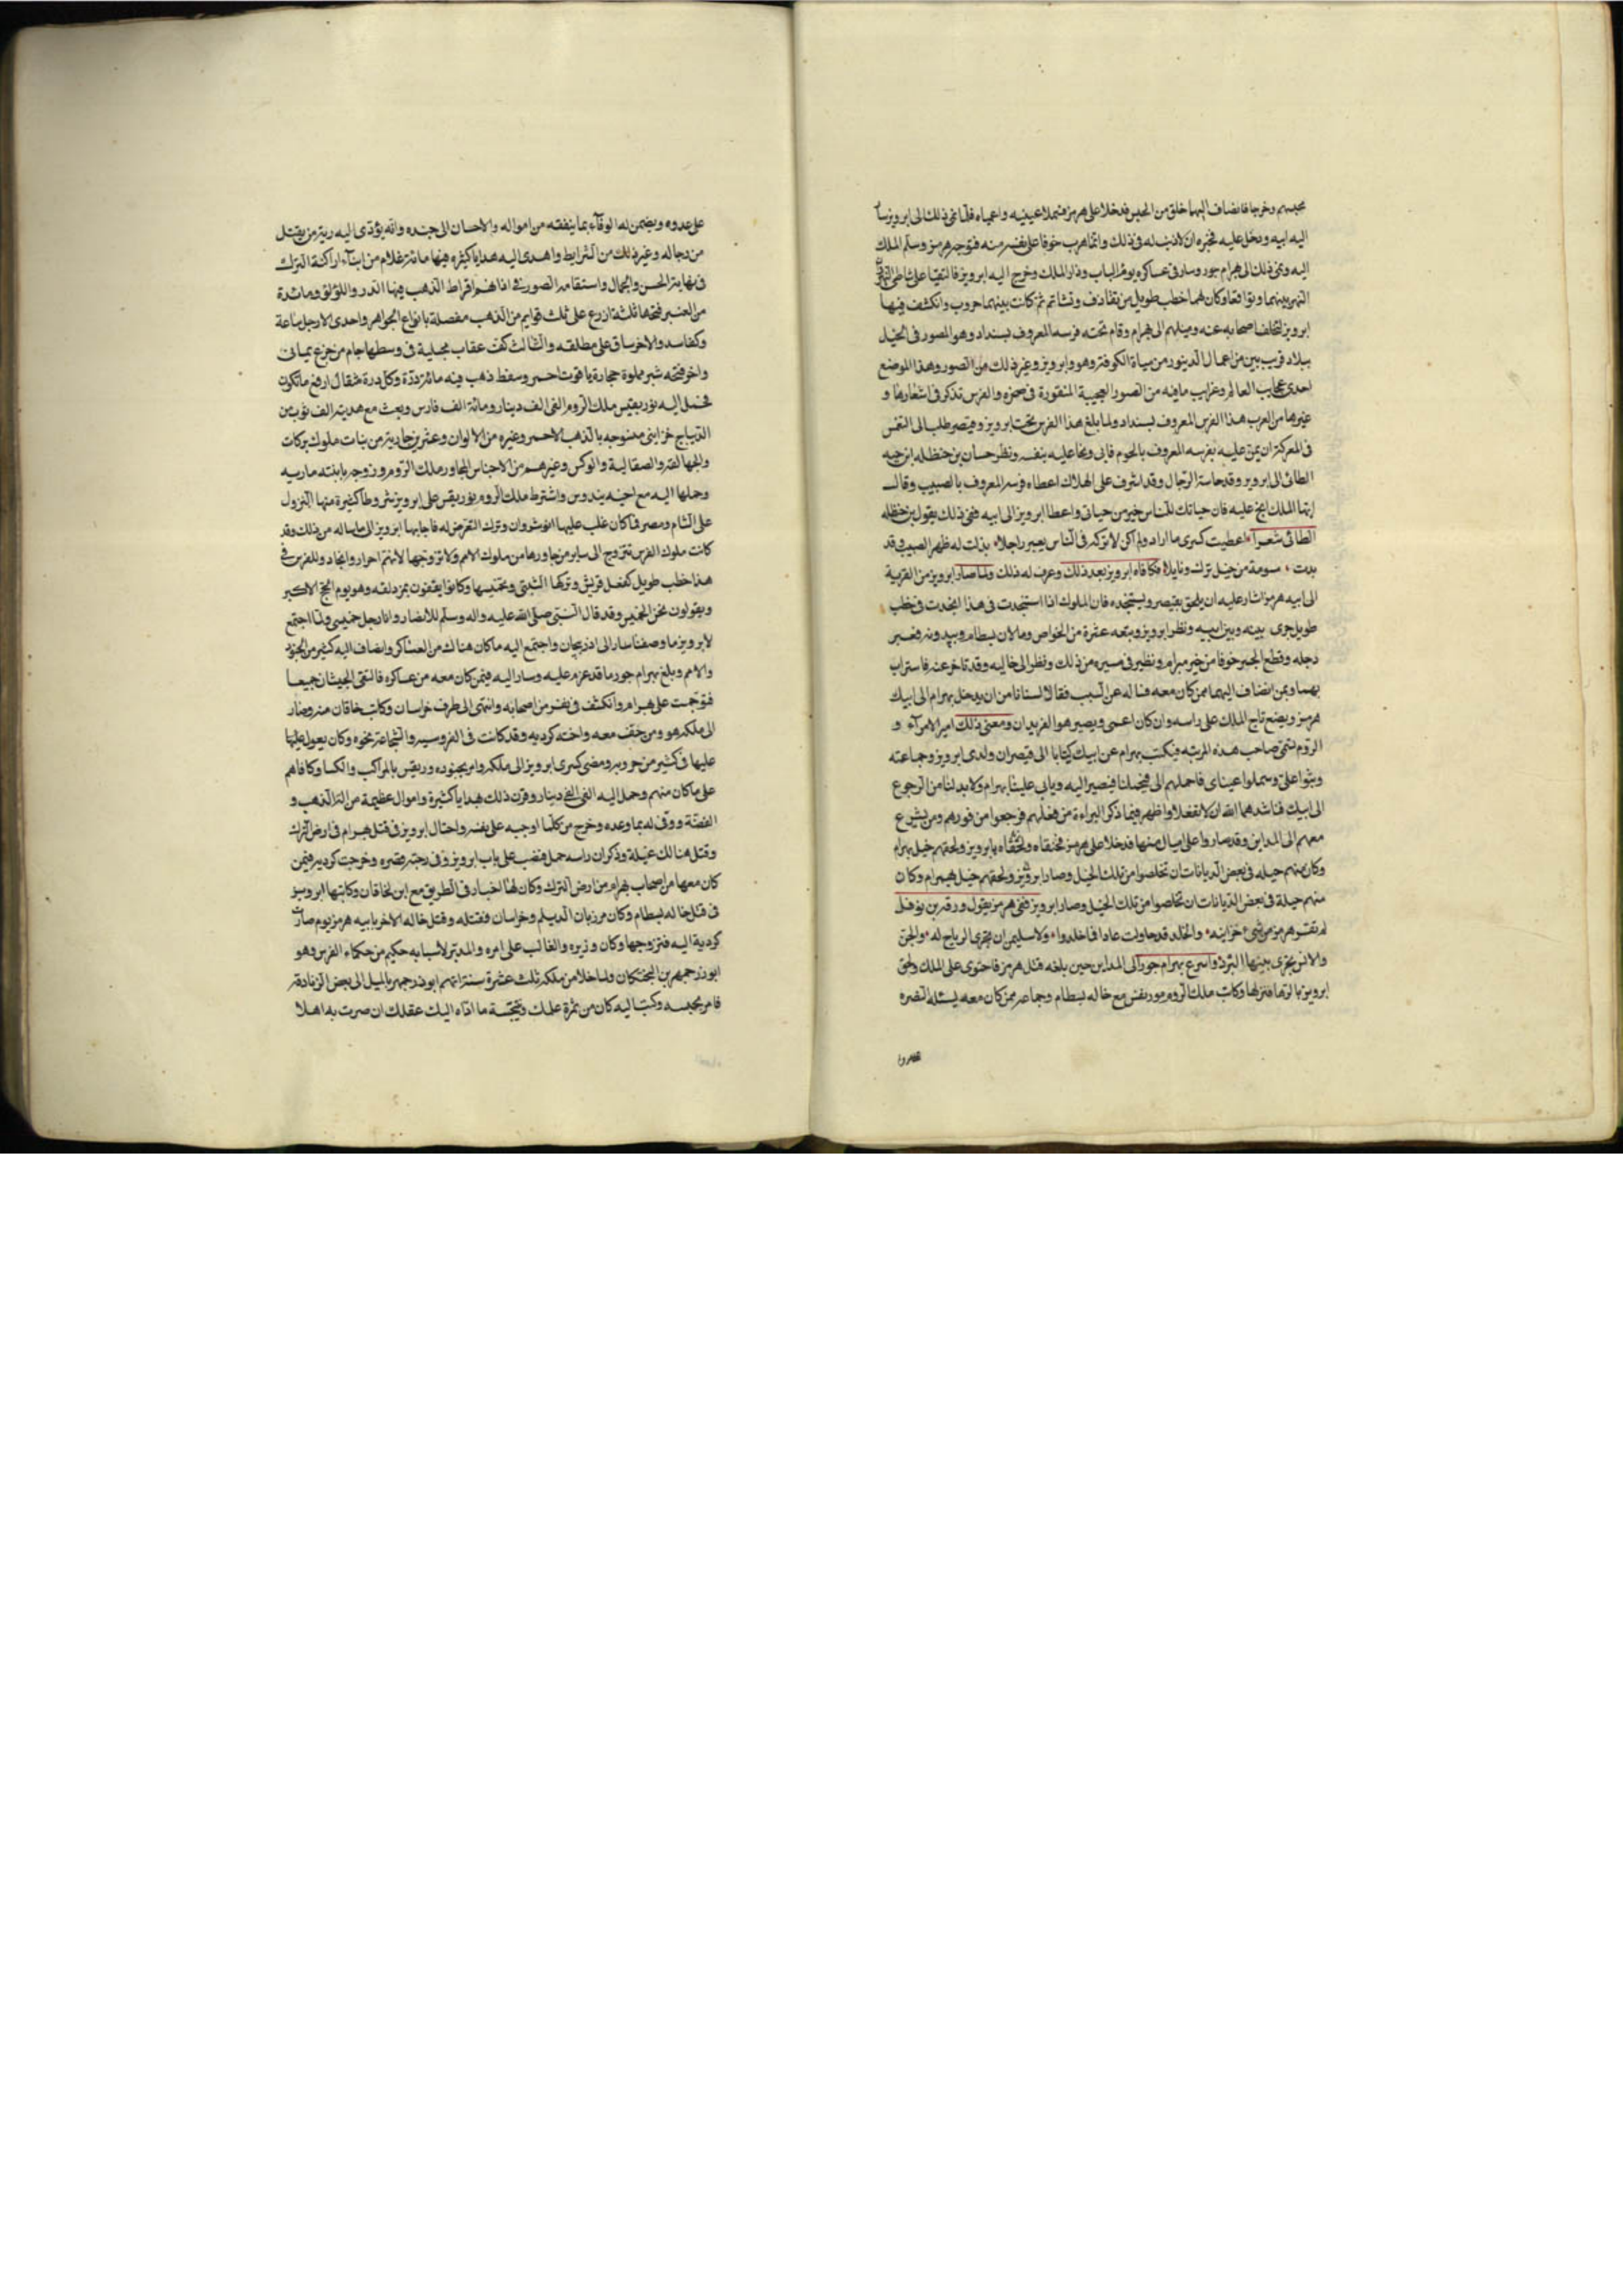 محبسهم وخرجا فانضاف اليهما خلق من الحبس فدخلا على هرمز فسملا عينيه واعمياه فلما نمى ذلك الى ابرويز سار
اليه ابيه ودخل عليه فخبره ان لا ذنب له في ذلك وانما هرب خوفا على نفسه منه فتوجه هرمز وسلم الملك
اليه ونمى ذلك الى بهرام جور وسار في عساكره يوم الباب ودار الملك وخرج اليه ابرويز فالتقيا على شاطى النهروان
النهر بينهما وتواقفا وكان لهما خطب طويل من تقاذف وتشاتم ثم كانت بينهما حروب وانكشف فيها
ابرويز لتخلف اصحابه عنه وميلهم الى بهرام وقام تحته فرسه المعروف بسنداد وهو المصور في الجبل
ببلاد قريب من اعمال الدينور من مياة الكوفة وهو وابرويز وغير ذلك من الصور وهذا الموضع
احدى عجايب العالم وغرايب ما فيه من الصور العجيبة المنقورة في صخره والفرس تذكر في اشعارها و
غيرها من العرب هذا الفرس المعروف بسنداد ولما بلغ هذا الفرس تحت ابرويز وقيصر طلب الى النعمن
في المعركة ان يمن عليه بفرسه المعروف باليحوم فابى ونجا عليه بنفسه ونظر حسان بن حنظله ابن حيه
الطائى الى ابرويز وقد خاسته الرجال وقد اشرف على الهلاك اعطاه فرسه المعروف بالضبيب وقال
ايها الملك انج عليه فان حياتك للناس خير من حياتى واعطا ابرويز الى ابيه ففى ذلك يقول بن حنظله
الطائى شعرا اعطيت كسرى ما اراد ولم اكن لاتركه في الناس يعبر راجلا بذلت له ظهر الضبيب وقد
بدت مسومة من خيل ترك ونايلا فكافاه ابرويز بعد ذلك وعرف له ذلك ولما صار ابرويز من القرية
الى ابيه هرمز اشار عليه ان يلحق بقيصر ويستنجده فان الملوك اذا استنجدت في هذا انجدت في خطب
طويل جرى بينه وبين ابيه ونظر ابرويز وبتعه عشرة من الخواص وخالان بسطام وبندويه فعبر
دجله وقطع الجسر خوفا من خيل بهرام ونظر في مسيره من ذلك ونظر الى خاليه وقد تاخر عنه فاستراب
بهما وبمن انضاف اليهما ممن كان معه فساله عن السبب فقالا لسنا نامن ان يدخل بهرام الى ابيك
هرمز ويضع تاج الملك على راسه وان كان اعمى ويصير هو الفريدان ومعنى ذلك امير الامرآء و
الروم تسمى صاحب هذه المرتبه فيكتب بهرام عن ابيك كتابا الى قيصر ان ولدى ابرويز وجماعته
وثبوا على وسملوا عيناى فاحملهم الى فيحملنا قيصر اليه وياتى علينا بهرام ولا بد لنا من الرجوع
الى ابيك فناشدهما الله ان لا تفعلا واظهر فيما ذكر البراءة من فعلهم فرجعوا من فورهم ومن يشرع
معهم الى المداين وقد صاروا على اميال منها فدخلا على هرمز فخنقاه ولحقاه بابرويز ولحقهم خيل بهرام
وكان منهم حيله في بعض الديانات ان تخلصوا من تلك الخيل وصار ابرويز ولحقهم خيل بهرام وكان
منهم حيلة في بعض الديانات ان تخلصوا من تلك الخيل وصار ابرويز ففى هرمز يقول ورقه بن نوفل
لم يغن هرمز من شىء خزاينه والخلد قد حاولت عاد افا خلدوا ولا سليمان تجرى الرياح له والجن
والانس يجرى بينها البرد واسرع بهرام جور الى المداين حين بلغه قتل هرمز فاحتوى على الملك ولحق
ابرويز بالرها فنزلها وكاتب ملك الروم مورىقس مع خاله بسطام وجماعه ممن كان معه يسئله النصره
على عدوه ويضمن له الوفآء بما ينفقه من امواله والاحسان الى جنده وانه يؤدى اليه دية من يقتل
من رجاله وغير ذلك من الشرايط واهدى اليه هدايا كثيره فيها مائة غلام من ابنآء اراكنة الترك
في نهاية الحسن والجمال واستقامه الصور في اذانهم اقراط الذهب فيها الدر واللؤلؤ ومائدة
من العنبر فتحها ثلثة اذرع على ثلث قوايم من الذهب مفصلة بانواع الجواهر واحدى الارجل ساعة
وكف اسد والاخر ساق على مطلقه والثالث كف عقاب مجلية في وسطها جام من جزع يمانى
واخر فتحه شبر مملوة حجارة ياقوت احمر وسفط ذهب فيه مائة درة وكل درة مثقال ارفع ما تكون
فحمل اليه مورىقس ملك الروم الفى الف دينار ومائة الف فارس وبعث مع هديته الف ثوب من
الديباج خزاينى منسوجه بالذهب الاحمر وغيره من الالوان وعشرين جارية من بنات ملوك بركات
والجهالقه والصقالبة والوكس وغيرهم من الاجناس المجاور ملك الروم وزوجه بابنته ماريه
وحملها اليه مع اخيه بندوس واشترط ملك الروم مورىقس على ابرويز شروطا كثيرة منها النزول
على الشام ومصر فما كان غلب عليها انوشروان وترك التعرض له فاجابها ابرويز الى ما ساله من ذلك وقد
كانت ملوك الفرس تتزوج الى ساير من جاورها من ملوك الامم ولا تزوجها لانهم احرار وانجاد وللفرس في
هذا خطب طويل كفعل قريش وتركها الثنى وتحمسها وكانوا يقفون بمزدلفه وهو يوم الحج الاكبر
ويقولون نحن الحمس وقد قال النبى صلى الله عليه واله وسلم للانصار وانا رجل حمسى ولما اجتمع
لابرويز ما وصفنا سار الى اذربيجان واجتمع اليه ما كان هناك من العساكر وانضاف اليه كثير من الجنود
والامم وبلغ بهرام جور ما قد عزم عليه وسار اليه فيمن كان معه من عساكره فالتقى الجيشان جميعا
فتوجهت على بهرام وانكشف في نفر من اصحابه وانتهى الى طرف خراسان وكاتب خاقان منه وصار
الى ملكه هو ومن خف معه واخته كرديه وقد كانت في الفروسيه والشجاعة نحوه وكان يعول عليها
عليها في كثير من حروبه ومضى كسرى ابرويز الى ملكه وامر بجنوده ورىقس بالمراكب والكسا وكافاهم
على ما كان منهم وحمل اليه الفى الف دينار وقرن ذلك هدايا كثيرة واموال عظيمة من الذهب و
الفضة ووفى له بما وعده وخرج من كلما اوجبه على نفسه واحتال ابرويز في قتل بهرام في ارض الترك
وقتل هنالك غيلة وذكر ان راسه حمل فنصب على باب ابرويز في رحبة قصره وخرجت كرديه فيمن
كان معها من اصحاب بهرام من ارض الترك وكان لها اخبار في الطريق مع ابن لخاقان وكاتبها ابرويز
في قتل خاله بسطام وكان مرزبان الديلم وخراسان فقتله وقتل خاله الاخر بابيه هرمز يوم صارت
كردية اليه فتزوجها وكان وزيره والغالب على امره والمدبر لاسبابه حكيم من حكماء الفرس وهو
ابوزرجمهر بن البختكان ولما خلا من ملكه ثلث عشرة سنة اتهم ابوزرجمهر بالميل الى بعض الزنادقة
فامر بحبسه وكتب اليه كان من ثمرة علمك ونتيجة ما اداه اليك عقلك ان صرت به اهلا